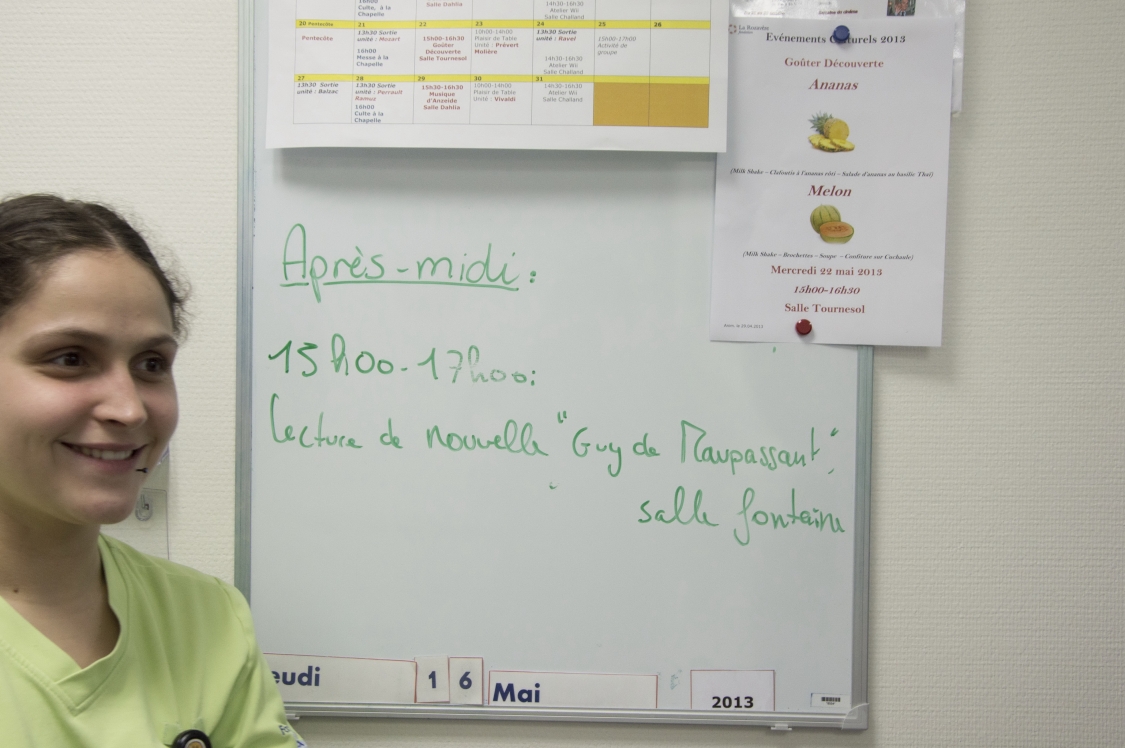 Culte, à la
Chapelle
Salle Dahlia
14h30-16h30
Atelier Wii
Salle Challand
20 Pentecôte 21 22 23 24 25 26
Pentecôte
13h30 Sortie
unité : Mozart
16h00
Messe à la
Chapelle
15h00-16h30
Goûter
Découverte
Salle Tournesol
10h00-14h00
Plaisir de Table
Unité : Prévert
Molière
13h30 Sortie
unité : Ravel
14h30-16h30
Atelier Wii
Salle Challand
15h00-17h00
Activité de
groupe
27 28 29 30 31
13h30 Sortie
unité : Balzac
13h30 Sortie
unité : Perrault
Ramuz
16h00
Culte à la
Chapelle
15h30-16h30
Musique
d'Anzeide
Salle Dahlia
10h00-14h00
Plaisir de Table
Unité : Vivaldi
14h30-16h30
Atelier Wii
Salle Challand
Evénements C turels 2013
Goûter Découverte
Ananas
(Milk Shake – Clafoutis à l'ananas rôti – Salade d'ananas au basilic Thaï)
Melon
(Milk Shake – Brochettes – Soupe – Confiture sur Cuchaule)
Mercredi 22 mai 2013
15h00-16h30
Salle Tournesol
Après-midi :
15h00-17h00:
Lecture de nouvelle "Guy de Maupassant",
salle fontaine
eudi 1 6 Mai 2013